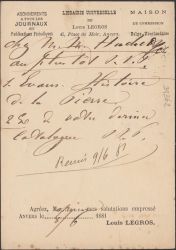 ABONNEMENTS
A TOUS LES
JOURNAUX
ET
Publications Périodiques
LIBRAIRIE UNIVERSELLE
DE
Louis LEGROS
45, Place de Meir, Anvers.
MAISON
DE COMMISSION
Belge-Néerlandaise
chez M. Hachette
au plus tôt S.V.P.
1 Evans. Histoire
de la Pierre
à votre dernier
Catalogue S.V.P.
Remis 9/6 81
Agréez, M mes salutations empressé
ANVERS le 1881
Louis LEGROS.